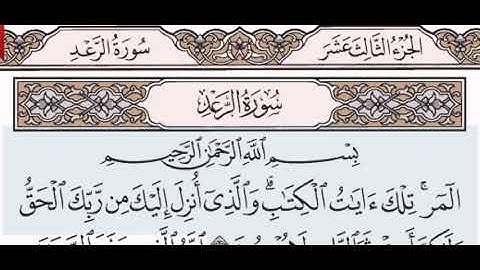 الجزء الثالث عشر
سورة الرعد
سُورَةُ الرَّعْدِ
بِسْمِ اللَّهِ الرَّحْمَٰنِ الرَّحِيمِ
الٓمٓر ۚ تِلْكَ ءَايَٰتُ ٱلْكِتَٰبِ ۗ وَٱلَّذِىٓ أُنزِلَ إِلَيْكَ مِن رَّبِّكَ ٱلْحَقُّ